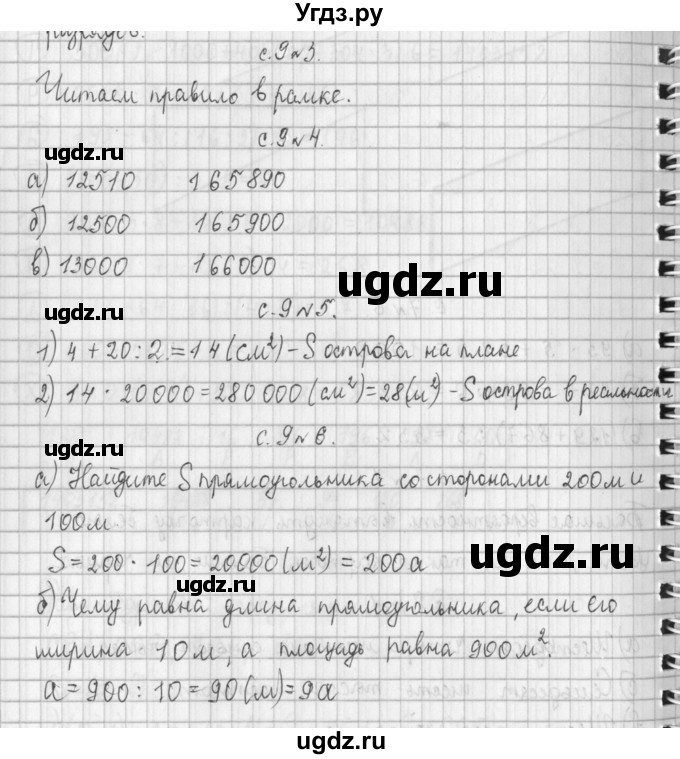 Угдз.ру
разрядов.
с.9 №3.
Читаем правило в рамке.
с.9 №4.
ugdz.ru
а) 12510 165890
ugdz.ru
б) 12500 165900
в) 13000 166000
ugdz.ru
ugdz.ru
с.9 №5.
1) 4 + 20 : 2 = 14 (см²) - S острова на плане
2) 14 · 20 000 = 280 000 (см²) = 28 (м²) - S острова в реальности
ugdz.ru
с.9 №6.
а) Найдите S прямоугольника со сторонами 200м и
100м
ugdz.ru
S = 200 · 100 = 20000 (м²) = 200а
ugdz.ru
б) Чему равна длина прямоугольника, если его
ширина 10м, а площадь равна 900м².
а = 900 : 10 = 90 (м) = 9а
ugdz.ru
ugdz.ru